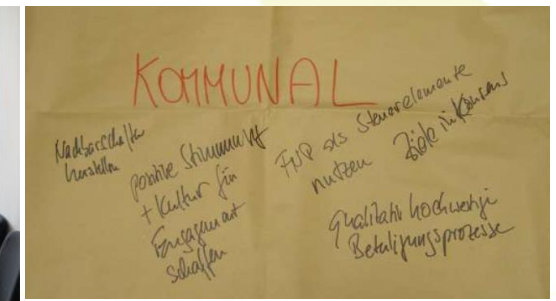 KOMMUNAL
Nachbarschaften
herstellen
positive Stimmung
+ Kultur für
Engagement
schaffen
FNP als Steuerelemente
nutzen Ziele in Konsens
Qualitativ hochwertige
Beteiligungsprozesse